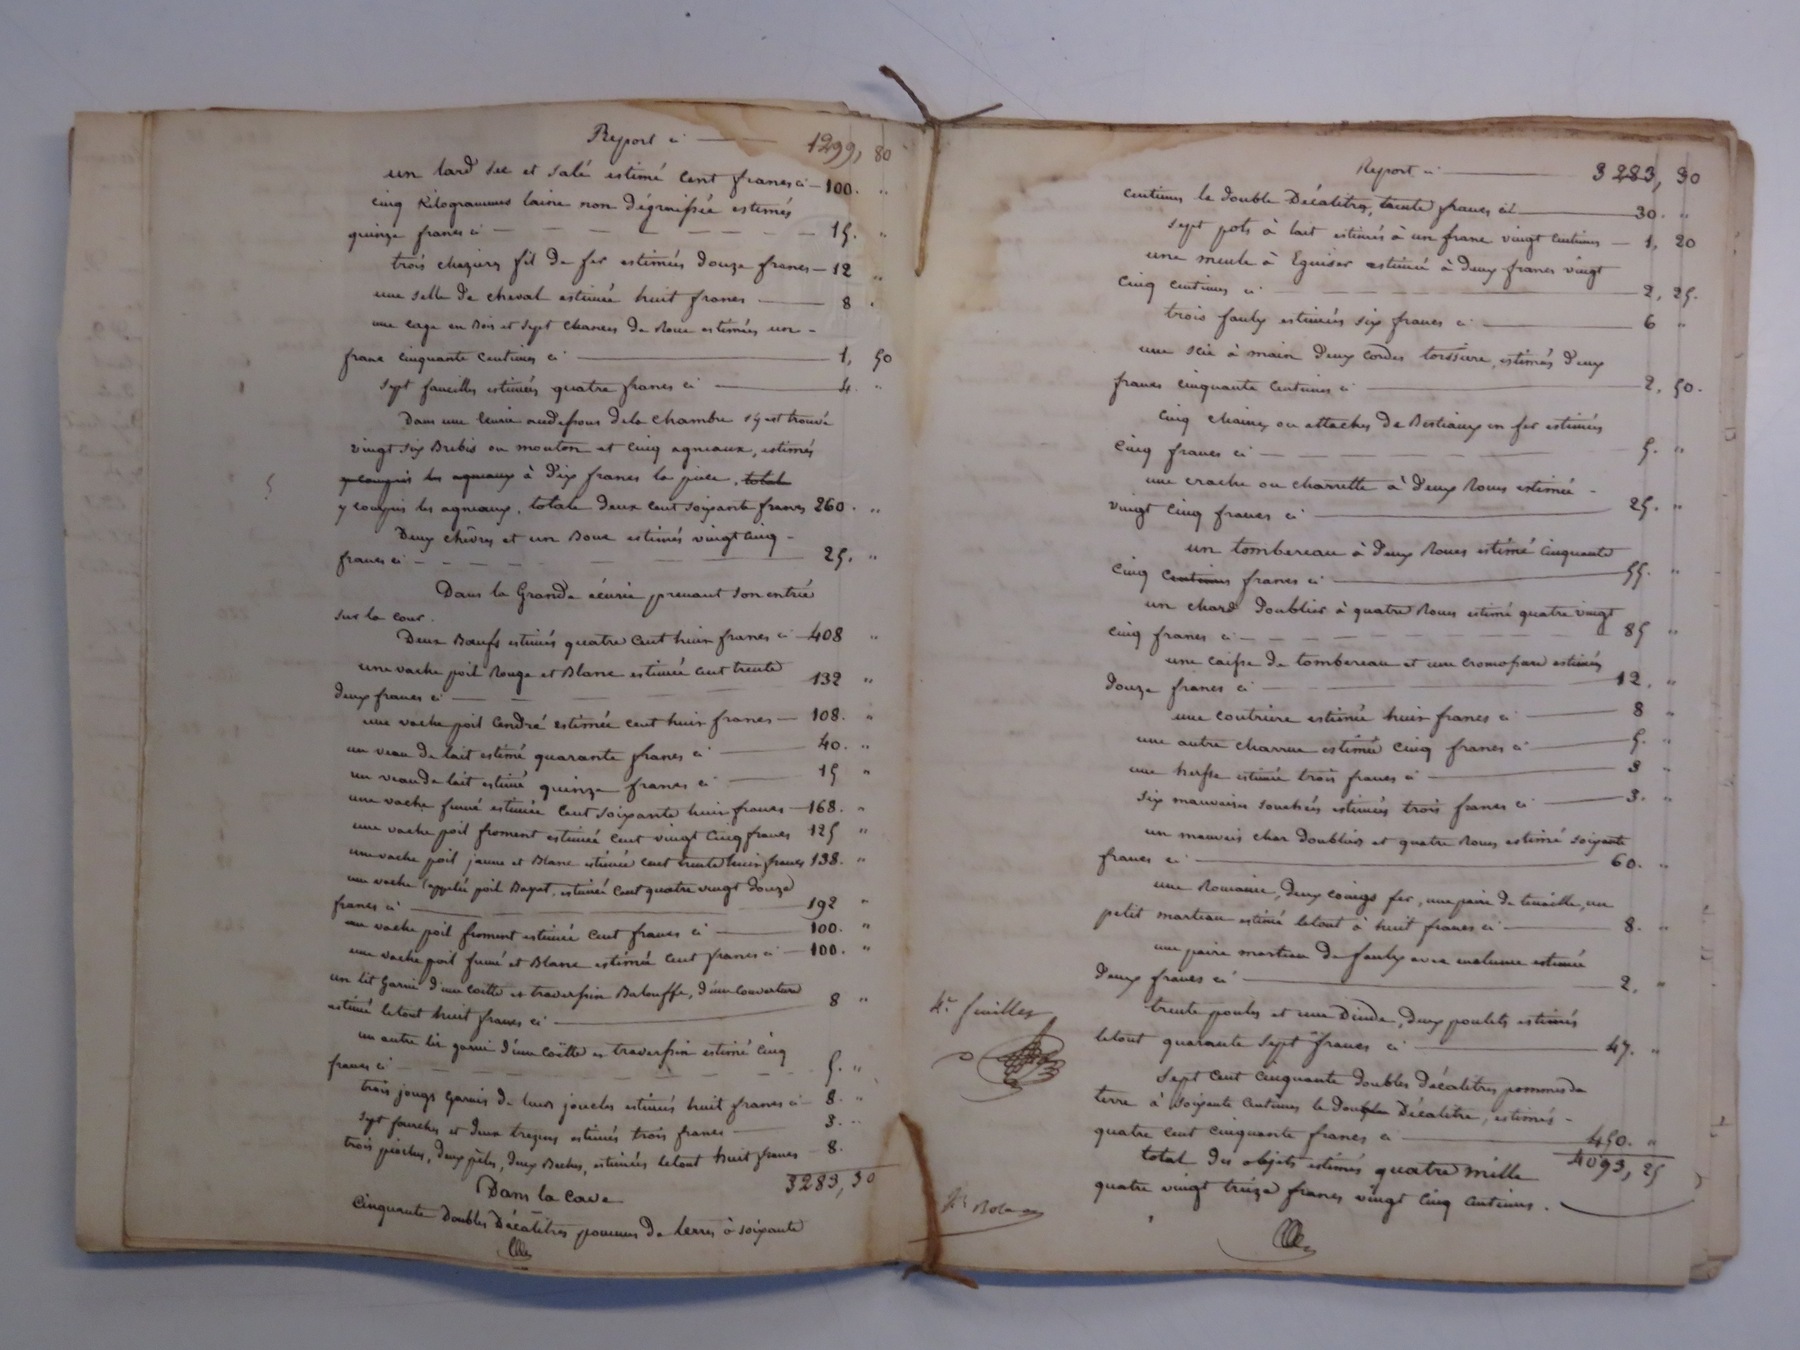 Report ci — 1299, 80
un lard sec et salé estimé Cent francs ci — 100. "
cinq Kilogrammes laine non dégraissée estimés
quinze francs ci — 15. "
trois chaziers fil de fer estimés douze francs — 12 "
une selle de cheval estimée huit francs — 8 "
une cage en Bois et sept de Roue estimées un
franc cinquante Centimes ci — 1, 50
sept faucilles estimées quatre francs ci — 4. "
Dans une écurie audessous de la chambre s'y est trouvé
vingt six Brebis ou mouton et Cinq agneaux, estimés
y compris les agneaux à dix francs la pièce, total
y compris les agneaux, totale deux cent soixante francs 260. "
Deux chèvres et un Bouc estimés vingt cinq
francs ci — 25. "
Dans la Grande écurie prenant son entrée
sur la cour.
Deux Bœufs estimés quatre Cent huit francs ci — 408 "
une vache poil Rouge et Blanc estimée cent trente
deux francs ci — 132 "
une vache poil Cendré estimée cent huit francs — 108. "
un veau de lait estimé quarante francs ci — 40. "
un veau de lait estimé quinze francs ci — 15 "
une vache fumé estimée Cent soixante huit francs — 168. "
une vache poil froment estimée Cent vingt Cinq francs 125 "
une vache poil jaune et Blanc estimée cent trente huit francs 138. "
une vache appelée poil Bayat, estimée Cent quatre vingt douze
francs ci — 192 "
une vache poil froment estimée Cent francs ci — 100. "
une vache poil fumé et Blanc estimée Cent francs ci — 100. "
un lit Garni d'une Coëtte et traversin Balouffe, d'une Couverture
estimé le tout huit francs ci — 8 "
un autre lit garni d'une Coëtte et traversin estimé Cinq
francs ci — 5. "
trois jougs garnis de leurs joucles estimés huit francs ci — 8. "
sept fourches et deux estimés trois francs — 3. "
trois pioches, deux pèles, deux Beches, estimées le tout huit francs — 8.
3283, 30
Dans la Cave
Cinquante doubles Décalitres pommes de terres à soixante
Report ci — 3283, 30
centimes le double Décalitres, trente francs ci — 30. "
sept pots à lait estimés à un franc vingt Centimes — 1, 20
une meule à Eguiser estimée à deux francs vingt
Cinq Centimes ci — 2, 25.
trois faulx estimées six francs ci — 6 "
une scie à main deux cordes estimés deux
francs Cinquante Centimes ci — 2, 50.
Cinq chaines ou attaches de Bestiaux en fer estimées
Cinq francs ci — 5. "
une ou charrette à deux Roues estimée
vingt Cinq francs ci — 25. "
un tombereau à deux Roues estimé Cinquante
Cinq Centimes francs ci — 55. "
un chard doublier à quatre Roues estimé quatre vingt
Cinq francs ci — 85 "
une caisse de tombereau et une estimées
douze francs ci — 12. "
une coutrière estimée huit francs ci — 8 "
une autre charrue estimée Cinq francs ci — 5. "
une herse estimée trois francs ci — 3 "
six mauvaises estimées trois francs ci — 3. "
un mauvais char doublier et quatre Roues estimé soixante
francs ci — 60. "
une Romaine, deux coings fer, une paire de tenaille, un
petit marteau estimé le tout à huit francs ci — 8. "
une paire marteau de faulx avec enclume estimée
deux francs ci — 2. "
trente poules et une Dinde, deux poulets estimés
le tout quarante sept francs ci — 47. "
4e. feuillet
Sept Cent Cinquante doubles décalitres pommes de
terre à soixante Centimes le double Décalitre, estimés
quatre cent Cinquante francs ci — 450. "
4093, 25
total des objets estimés quatre mille
quatre vingt treize francs vingt Cinq Centimes.